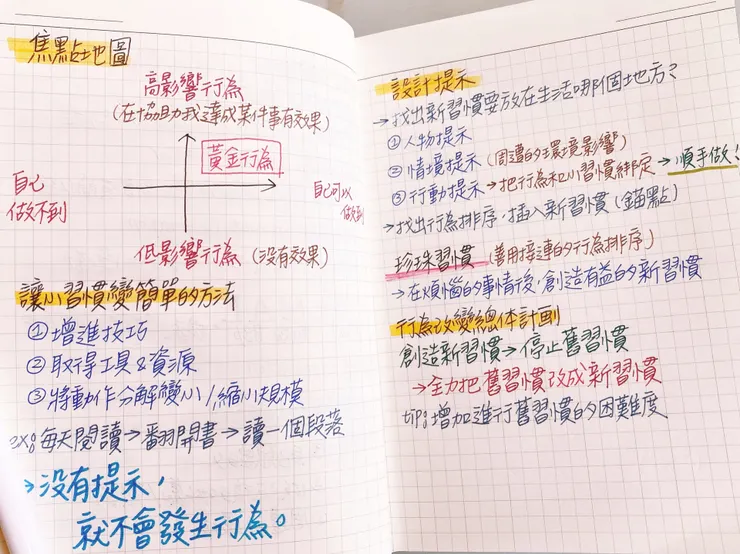 焦點地圖
高影響行為
(在協助我達成某件事有效果)
黃金行為
自己
做不到
自己可以
做到
低影響行為 (沒有效果)
讓小習慣變簡單的方法
①增進技巧
②取得工具&資源
③將動作分解變小/縮小規模
ex:每天閱讀→翻開書→讀一個段落
→沒有提示,
就不會發生行為。
設計提示
→找出新習慣要放在生活哪個地方?
①人物提示
②情境提示(周遭的環境影響)
③行動提示→把行為和小習慣綁定→順手做!
→找出行為排序,插入新習慣(錨點)
珍珠習慣 (善用接連的行為排序)
→在煩惱的事情後,創造有益的新習慣
行為改變總体計劃
創造新習慣→停止舊習慣
→全力把舊習慣改成新習慣
tip:增加進行舊習慣的困難度